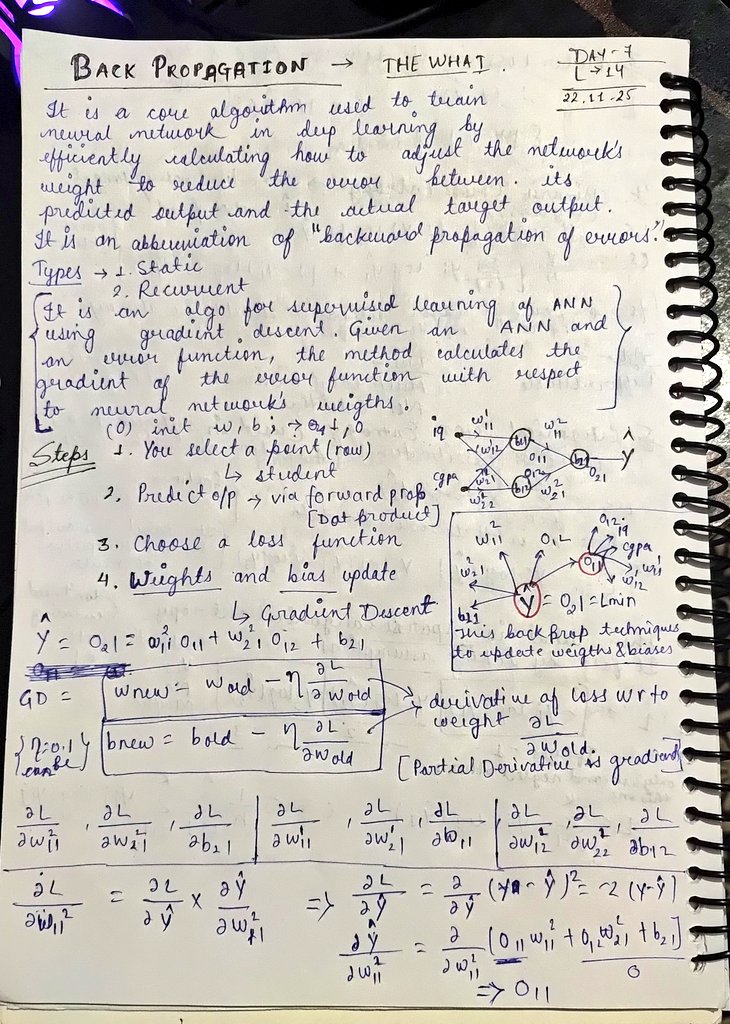 BACK PROPAGATION → THE WHAT.
DAY-7
L→14
22.11.25
It is a core algorithm used to train
neural network in deep learning by
efficiently calculating how to adjust the network's
weight to reduce the error between its
predicted output and the actual target output.
It is an abbreviation of "backward propagation of errors."
Types → 1. Static
2. Recurrent
It is an algo for supervised learning of ANN
using gradient descent. Given an ANN and
an error function, the method calculates the
gradient of the error function with respect
to neural network's weigths.
(0) init w, b
Steps 1. You select a point (row)
↳ student
2. Predict o/p → via forward prop
[Dot product]
3. Choose a loss function
4. Weights and bias update
↳ Gradient Descent
iq w¹₁₁ b₁₁ w²₁₁ Ŷ
w¹₁₂ O₁₁ b₂₁ O₂₁
cgpa w¹₂₁ b₁₂ O₁₂ w²₂₁
w²₂₂
w²₁₁ O₁₂ O₁₂ iq
cgpa
w²₂₁ O₁₁ w¹₂₁
w₁₂
b₂₁ Ŷ = O₂₁ = Lmin
This backprop techniques
to update weigths & biases
Ŷ = O₂₁ = w²₁₁ O₁₁ + w²₂₁ O₁₂ + b₂₁
GD = wnew = wold - η ∂L/∂wold
→ derivative of loss wr to
weight ∂L/∂wold.
{η=0.1 can be} bnew = bold - η ∂L/∂wold
[Partial Derivative as gradient]
∂L/∂w²₁₁ , ∂L/∂w²₂₁ , ∂L/∂b₂₁ | ∂L/∂w¹₁₁ , ∂L/∂w¹₂₁ , ∂L/∂b₁₁ | ∂L/∂w¹₁₂ , ∂L/∂w²₂₂ , ∂L/∂b₁₂
∂L/∂w₁₁² = ∂L/∂Ŷ × ∂Ŷ/∂w²₁₁ ⇒ ∂L/∂Ŷ = ∂/∂Ŷ (y - Ŷ)² = -2 (y-Ŷ)
∂Ŷ/∂w²₁₁ = ∂/∂w²₁₁ [O₁₁ w²₁₁ + O₁₂ w²₂₁ + b₂₁]
0
⇒ O₁₁